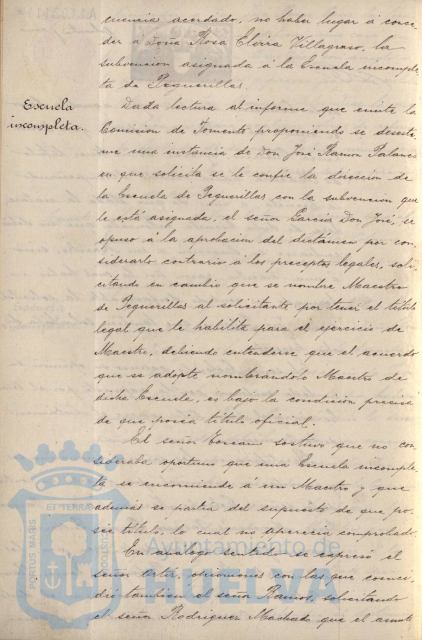 cuencia acordado, no haber lugar á conce-
der á Doña Rosa Elvira Villagraso, la
subvencion asignada á la Escuela incomple-
ta de Peguerillas.
Escuela
incompleta.
Dada lectura al informe que emite la
Comision de Fomento proponiendo se desesti-
me una instancia de Don José Ramon Palanco
en que solicita se le confie la direccion de
la Escuela de Peguerillas con la subvencion que
le está asignada, el señor García Don José, se
opuso á la aprobacion del dictámen por con-
siderarlo contrario á los preceptos legales, soli-
citando en cambio que se nombre Maestro
de Peguerillas al solicitante por tener el título
legal que le habilita para el ejercicio de
Maestro, debiendo entenderse que el acuerdo
que se adopte nombrándolo Maestro de
dicha Escuela, es bajo la condicion precisa
de que posea título oficial.
El señor sostuvo que no con-
sideraba oportuno que una Escuela incomple-
ta se encomiende á un Maestro y que
además se partia del supuesto de que po-
sia título, lo cual no aparecia comprobado.
En análogo sentido se expresó el
señor Ortiz, opiniones con las que coinci-
dió tambien el señor Ramos, solicitando
el señor Rodriguez Machado que el asunto
PORTUS MARIS ET TERRÆ CUSTODIA
Ayuntamiento de
HUELVA